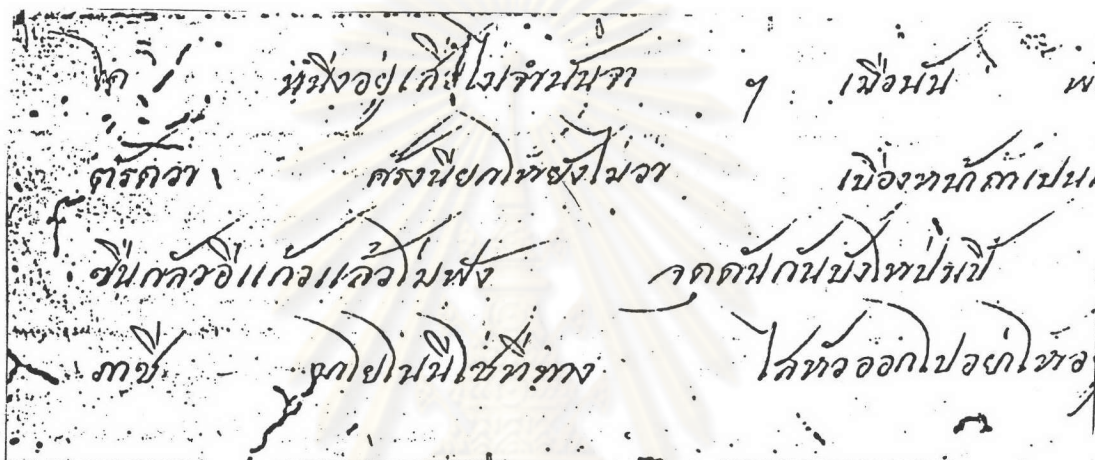 ใด นนิ่งอยู่เสียไม่จำนันจา ๆ เมื่อนั้น พ
ตรัดวา ครั้งนี้ยกให้ยังไม่วา เบื้องหน้าถ้าเปน
ขืนกลัวอีแก้วแล้วไม่ฟัง จุดดันกันบังให้ป่นปี้
ภาชี ใช่ที่ทาง ไสหัวออกไปอย่าให้อ